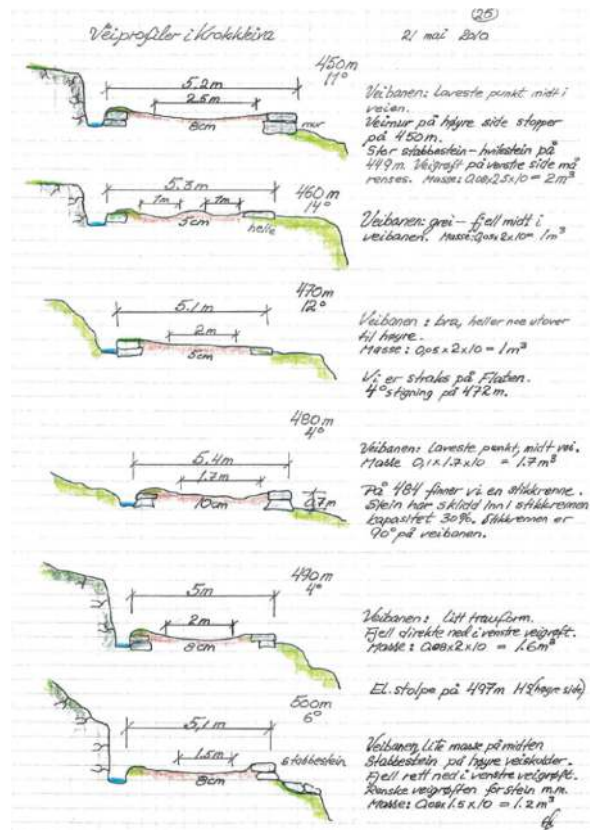 (25)
Veiprofiler i Krokkleiva
21 mai 2010
450m
11°
5.2m
2.5m
8cm
mur
Veibanen: Laveste punkt midt i
veien.
Veimur på høyre side stopper
på 450m.
Stor stabbestein - hvilestein på
449m. Veigrøft på venstre side må
renses. Masse: 0.08x2.5x10 = 2m³
460m
14°
5.3m
1m
1m
5cm
helle
Veibanen: grei - fjell midt i
veibanen. Masse: 0,05x2x10 = 1m³
470m
12°
5.1m
2m
5cm
Veibanen: bra, heller noe utover
til høyre.
Masse: 0,05x2x10 = 1m³
Vi er straks på Flaten.
4° stigning på 472m.
480m
4°
5.4m
1.7m
10cm
0.7m
Veibanen: Laveste punkt, midt vei.
Masse 0,1x1.7x10 = 1.7m³
På 484 finner vi en stikkrenne.
Stein har sklidd inn i stikkrennen
kapasitet 30%. Stikkrennen er
90° på veibanen.
490m
4°
5m
2m
8cm
Veibanen: Litt trauform.
Fjell direkte ned i venstre veigrøft.
Masse: 0.08x2x10 = 1.6m³
El. stolpe på 497m HS (høyre side)
500m
6°
5,1m
1.5m
8cm
stabbestein
Veibanen, Lite masse på midten
Stabbestein på høyre veiskulder.
Fjell rett ned i venstre veigrøft.
Renske veigrøften for stein m.m.
Masse: 0.08x1.5x10 = 1.2m³